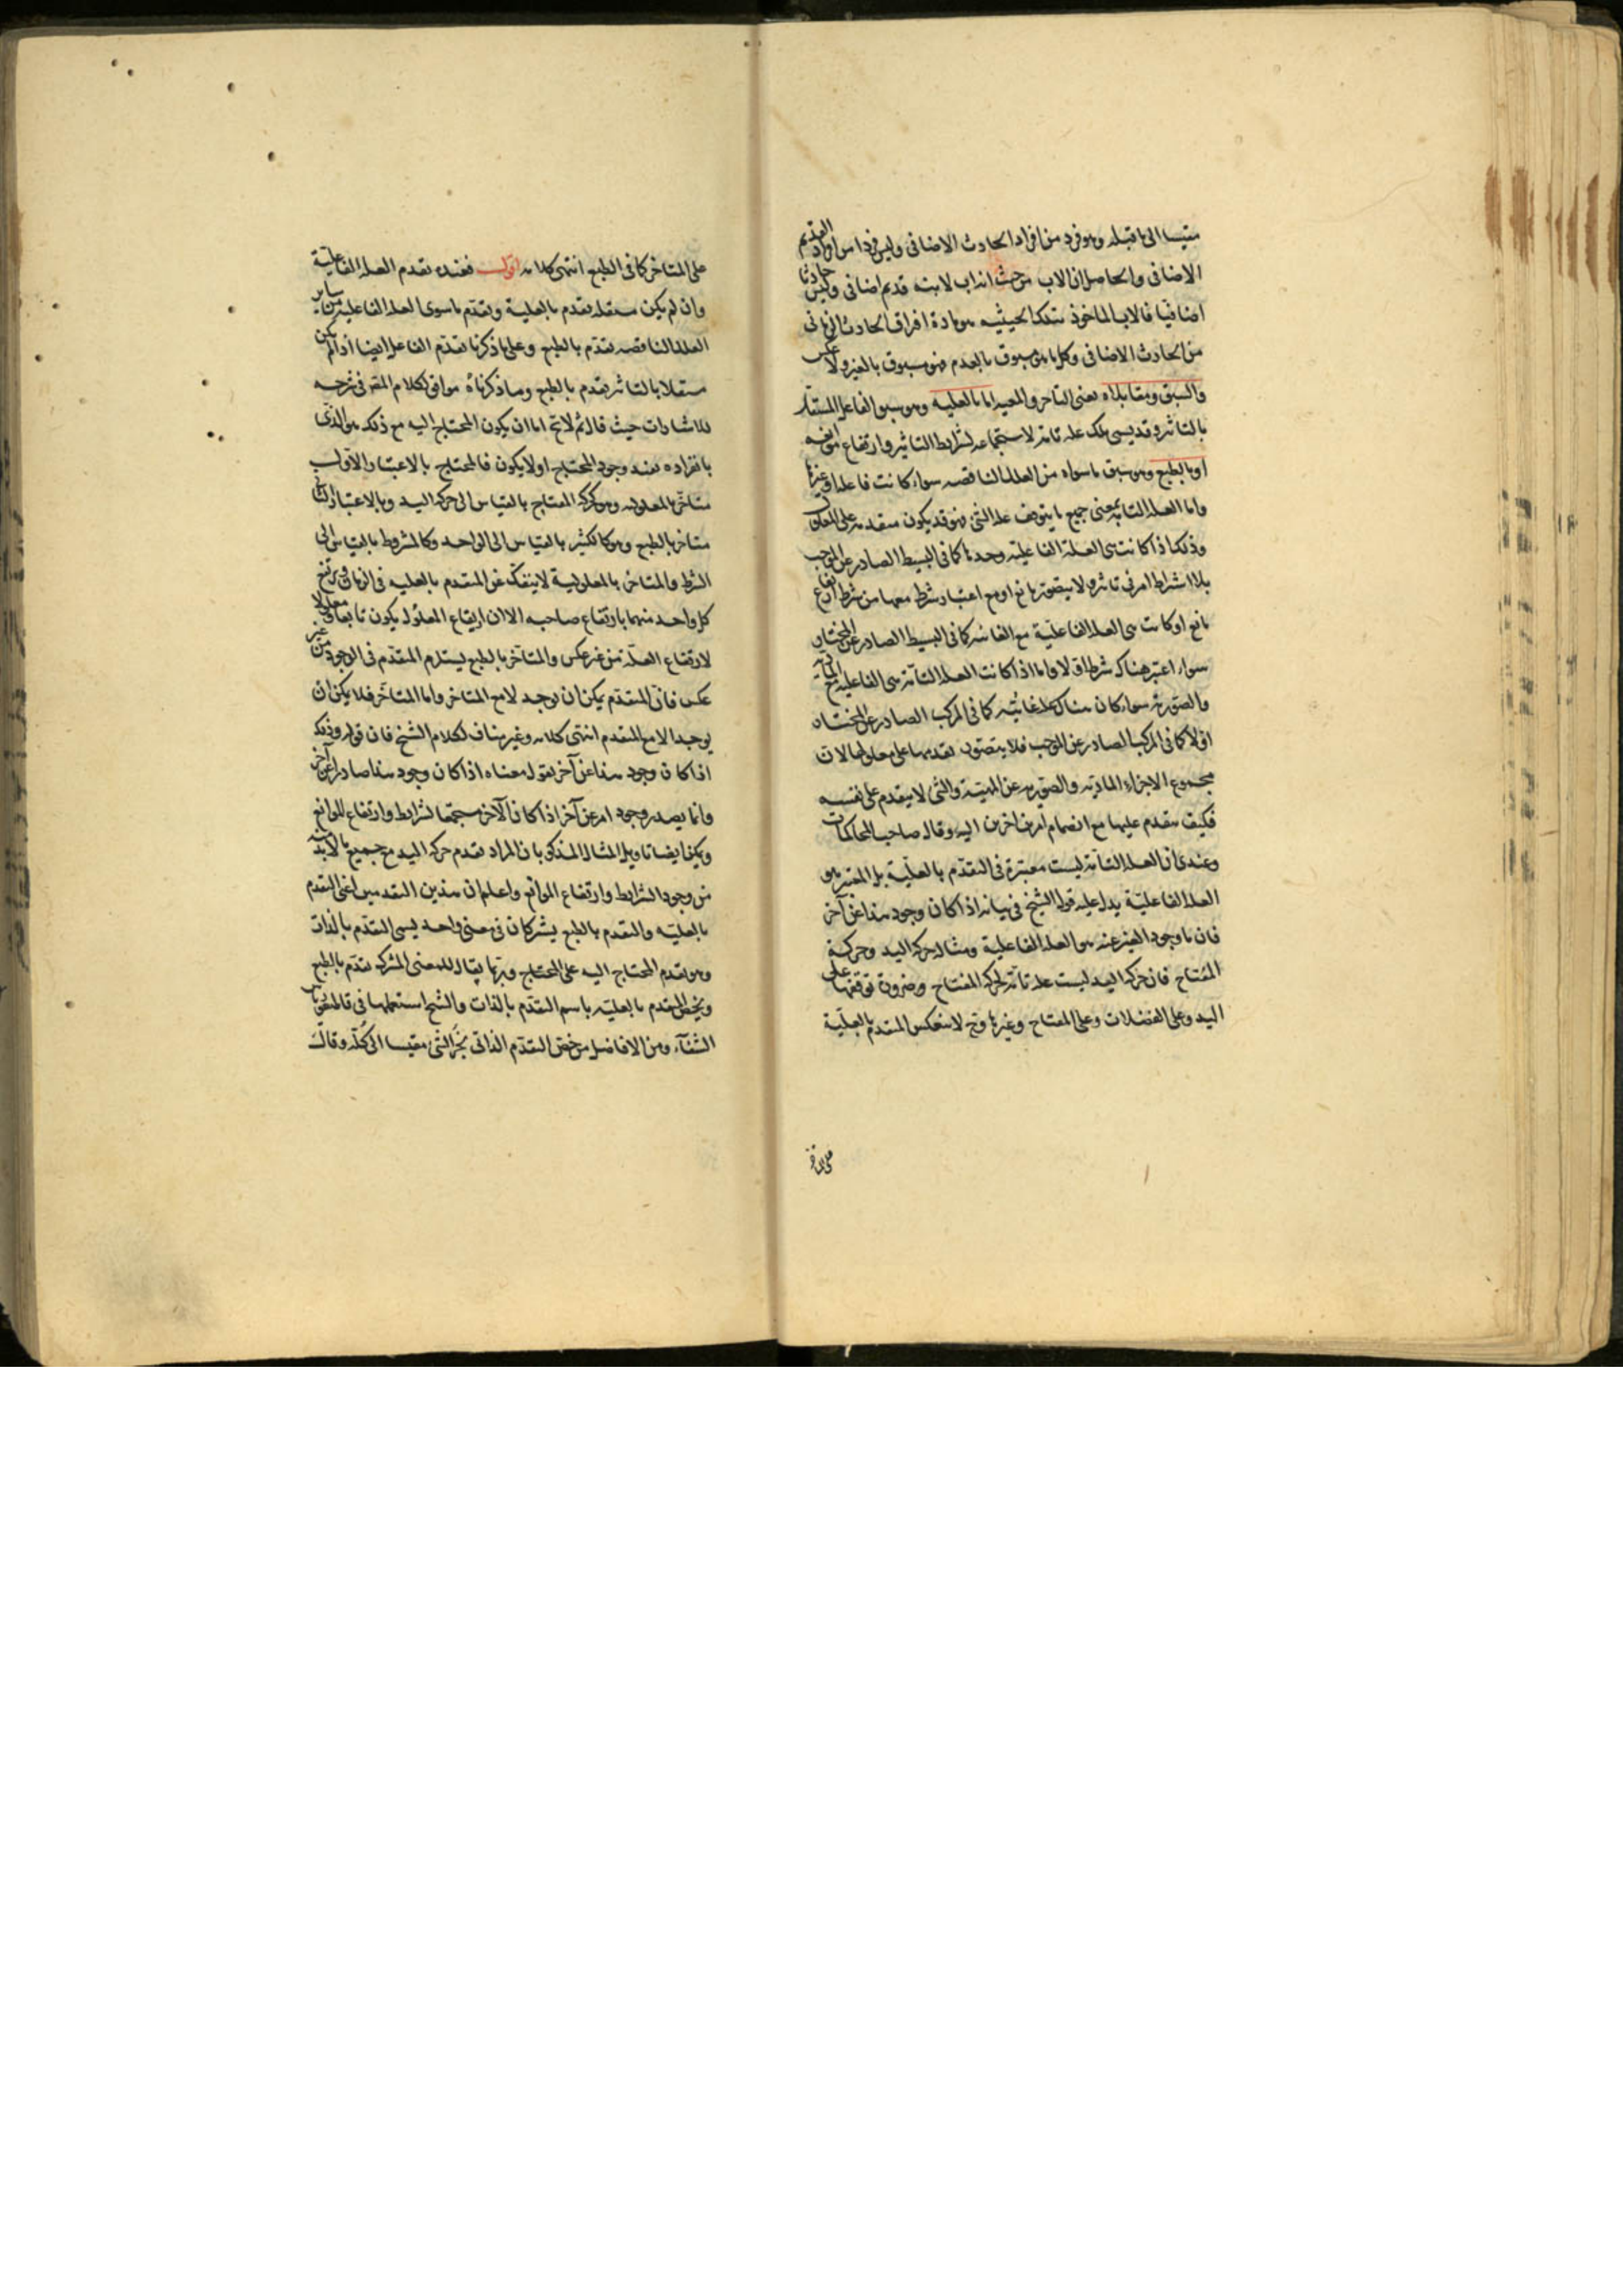 مقيسا الى ما قبله وهو فرد من افراد الحادث الاضافى وليس فردا من افراد القديم
الاضافى والحاصل ان الاب من حيث انه اب لابنه قديم اضافى وليس حادثا
اضافيا فالاب الماخوذ بتلك الحيثيه هو مادة افتراق الحادث الزمانى
من الحادث الاضافى وكل ما هو مسبوق بالعدم فهو مسبوق بالغير ولا عكس
والسبق ومقابلاه يعنى التاخر والمعيه اما بالعليه وهو سبق الفاعل المستقل
بالتاثير وقد يسمى تلك علة تامة لاستجماعه لشرايط التاثير وارتفاع موانعه
او بالطبع وهو سبق ما سواه من العلل الناقصه سواء كانت فاعله او غيرها
واما العلة التامه بمعنى جميع ما يتوقف عليه الشئ فهو قد يكون متقدمه على المعلول
وذلك اذا كانت هى العلة الفاعليه وحدها كما فى البسيط الصادر عن الموجب
بلا اشتراط امر فى تاثيره ولا يتصور مانع او مع اعتبار شرط معها من شرط او ارتفاع
مانع او كانت هى العلة الفاعلية مع الغائيه كما فى البسيط الصادر عن المختار
سواء اعتبر هناك شرط او لا واما اذا كانت العلة التامة هى الفاعليه مع المادية
والصورية سواء كان هناك علة غائيه كما فى المركب الصادر عن المختار
او لا كما فى المركب الصادر عن الموجب فلا يتصور تقدمها على معلولها لان
مجموع الاجزاء الماديه والصوريه عين المهية والشئ لا يتقدم على نفسه
فكيف يتقدم عليها مع انضمام امرين اخرين اليه وقال صاحب المحاكمات
وعندى ان العلة التامة ليست معتبرة فى التقدم بالعلية بل المعتبر هو
العلة الفاعلية يدل عليه قول الشيخ فى بيانه اذا كان وجود هذا عن آخر
فان ما وجود الغير عنه هو العلة الفاعلية ومثاله حركة اليد وحركة
المفتاح فان حركة اليد ليست علة تامة لحركة المفتاح وضرورة توقفها على
اليد وعلى العضلات وعلى المفتاح وغيرها وح لا ينعكس المتقدم بالعلية
على المتاخر كما فى الطبع انتهى كلامه اقول فعنده تقدم العلة الفاعلية
وان لم يكن مستقله تقدم بالعلية وتقدم ما سوى العلة الفاعليه من ساير
العلل الناقصه تقدم بالطبع وعلى ما ذكرنا تقدم الفاعل ايضا اذا لم يكن
مستقلا بالتاثير تقدم بالطبع وما ذكرناه موافق لكلام المص فى شرحه
للاشارات حيث قال ثم لا يخ اما ان يكون المحتاج اليه مع ذلك هو الذى
بانفراده يفيد وجود المحتاج او لا يكون فالمحتاج بالاعتبار الاول
متاخر بالمعلوليه وهو كحركة المفتاح بالقياس الى حركة اليد وبالاعتبار الثانى
متاخر بالطبع وهو كالكثير بالقياس الى الواحد وكالمشروط بالقياس الى
الشرط والمتاخر بالمعلولية لا ينفك عن المتقدم بالعليه فى الزمان ويرتفع
كل واحد منهما بارتفاع صاحبه الا ان ارتفاع المعلول يكون تابعا ومعلولا
لارتفاع العلة من غير عكس والمتاخر بالطبع يستلزم المتقدم فى الوجود من غير
عكس فان المتقدم يمكن ان يوجد لا مع المتاخر واما المتاخر فلا يمكن ان
يوجد الا مع المتقدم انتهى كلامه وغير مناف لكلام الشيخ فان قوله وذلك
اذا كان وجود هذا عن آخر نقول معناه اذا كان وجود هذا صادرا عن آخر
وانما يصدر وجود امر عن آخر اذا كان الآخر مستجمعا لشرايط وارتفاع الموانع
ويمكن ايضا تاويل المثال المذكور بان المراد تقدم حركة اليد مع جميع ما لا بد منه
من وجود الشرايط وارتفاع الموانع واعلم ان هذين التقدمين اعنى التقدم
بالعليه والتقدم بالطبع يشتركان فى معنى واحد يسمى التقدم بالذات
وهو تقدم المحتاج اليه على المحتاج وربما يقال للمعنى المشترك تقدم بالطبع
ويخص المتقدم بالعليه باسم التقدم بالذات والشيخ استعملهما فى قاطيغورياس
الشفآء ومن الافاضل من خص التقدم الذاتى بجزء الشئ مقيسا الى كله وقال